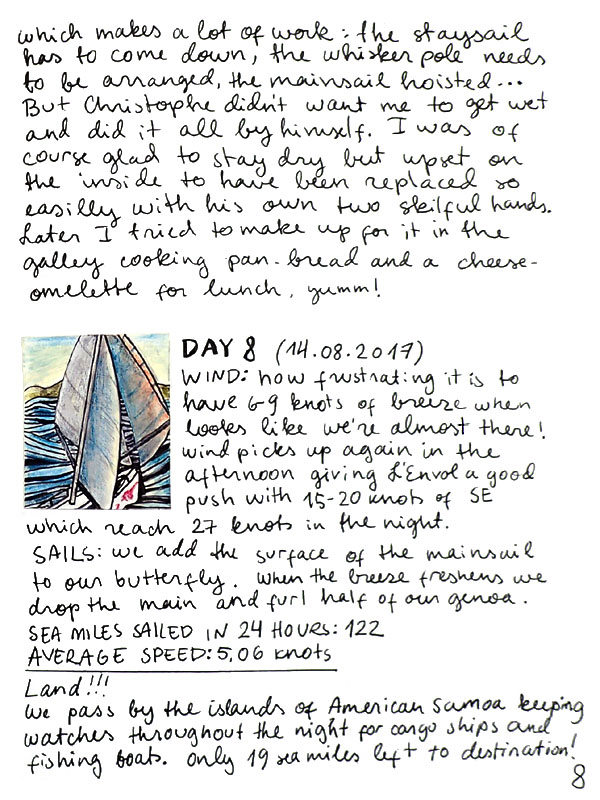 which makes a lot of work: the staysail
has to come down, the whisker pole needs
to be arranged, the mainsail hoisted...
But Christophe didn't want me to get wet
and did it all by himself. I was of
course glad to stay dry but upset on
the inside to have been replaced so
easilly with his own two skilful hands.
Later I tried to make up for it in the
galley cooking pan-bread and a cheese-
omelette for lunch, yumm!
DAY 8 (14.08.2017)
WIND: how frustrating it is to
have 6-9 knots of breeze when
looks like we're almost there!
wind picks up again in the
afternoon giving L'Envol a good
push with 15-20 knots of SE
which reach 27 knots in the night.
SAILS: we add the surface of the mainsail
to our butterfly. When the breeze freshens we
drop the main and furl half of our genoa.
SEA MILES SAILED IN 24 HOURS: 122
AVERAGE SPEED: 5,06 knots
Land!!!
We pass by the islands of American Samoa keeping
watches throughout the night for cargo ships and
fishing boats. Only 19 sea miles left to destination!
8